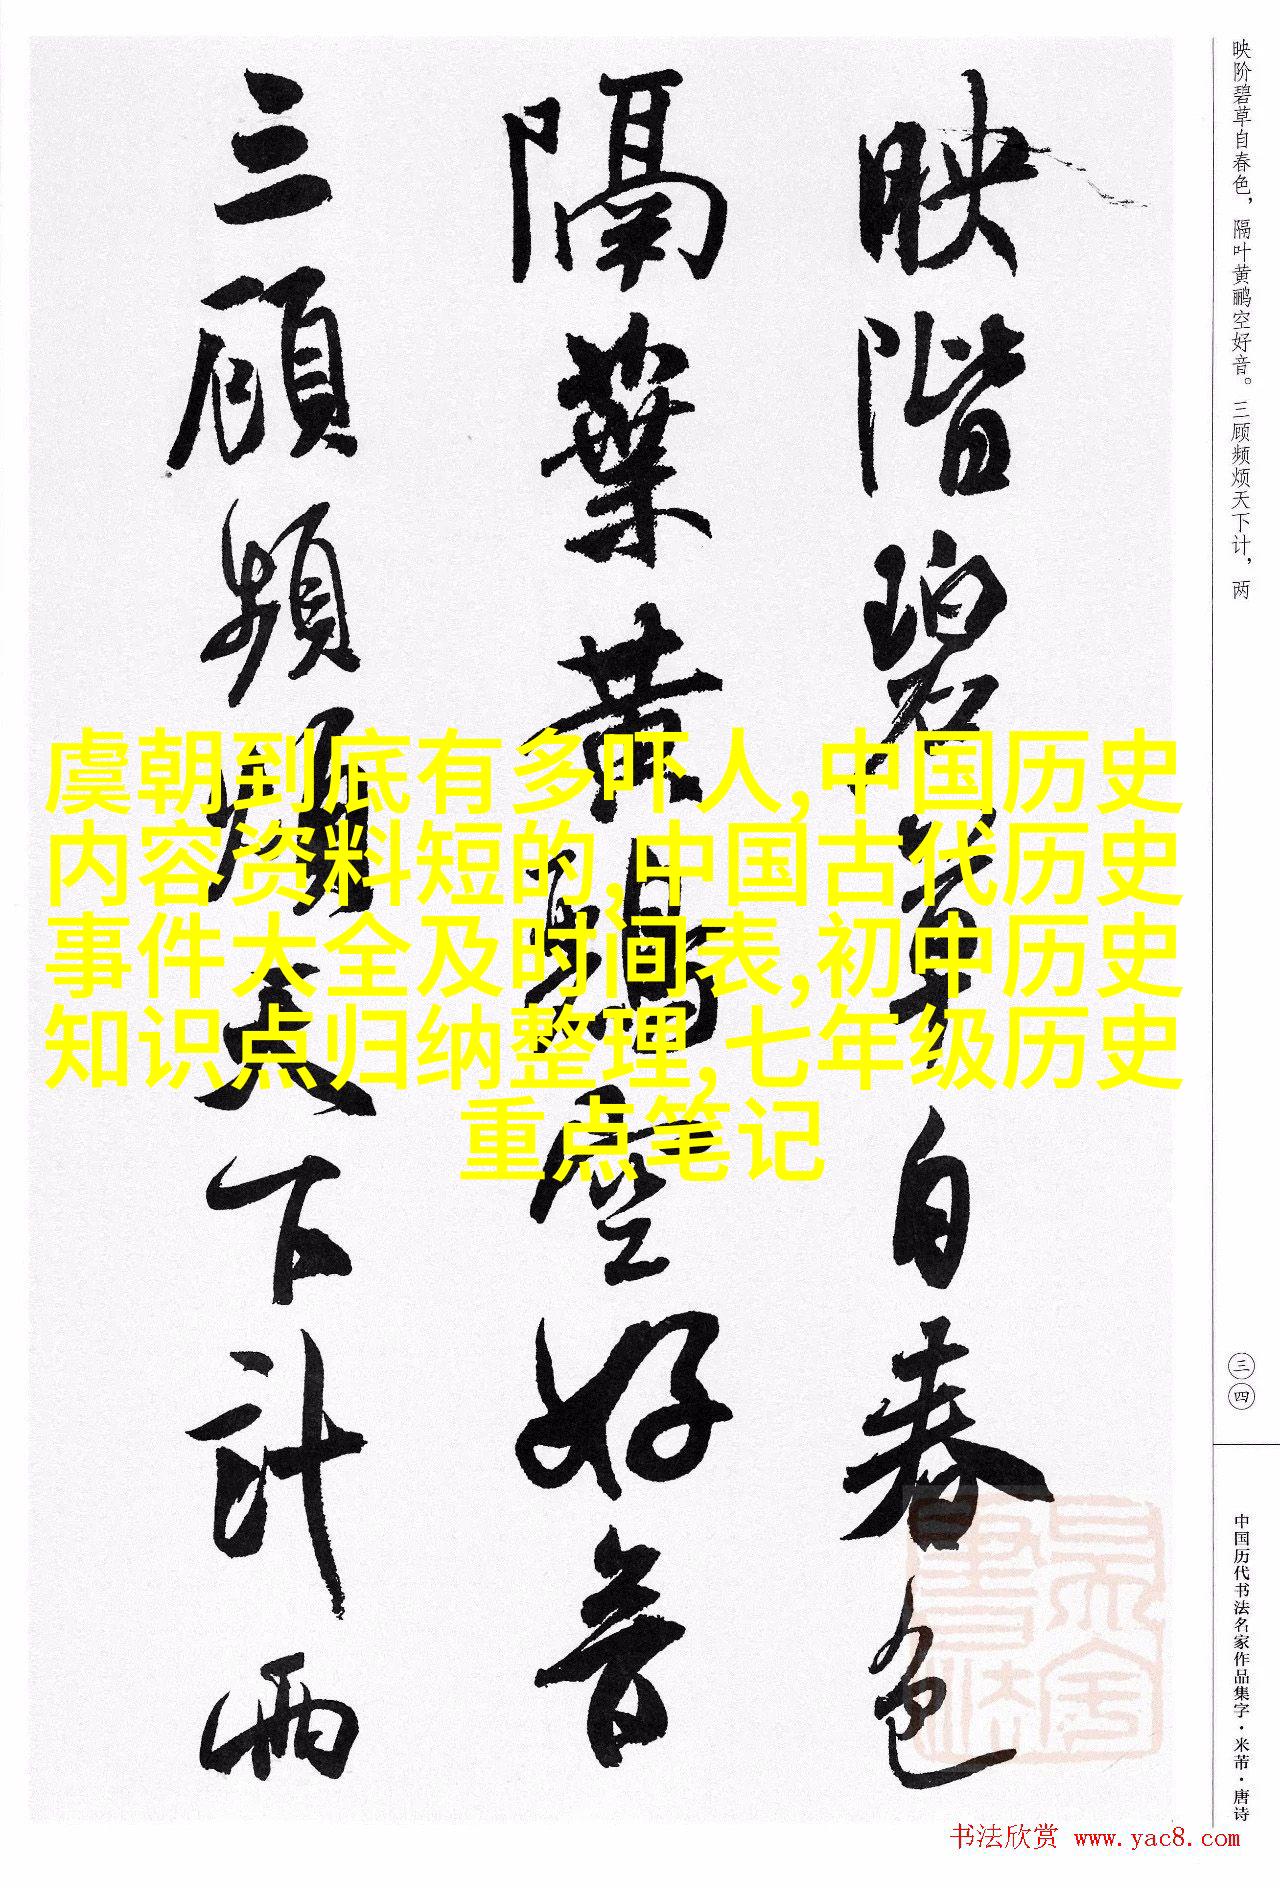 映阶碧草自春色，隔叶黄鹂空好音。三顾频烦天下计，两
映階碧草自春色
隔葉黄鸝空好音
三顧頻煩天下計兩
虞朝到底有多吓人,中国历史
内容资料短的,中国古代历史
事件大全及时间表,初中历史
知识点归纳整理,七年级历史
重点笔记
三四
中国历代书法名家作品集字·米芾·唐诗
书法欣赏 www.yac8.com